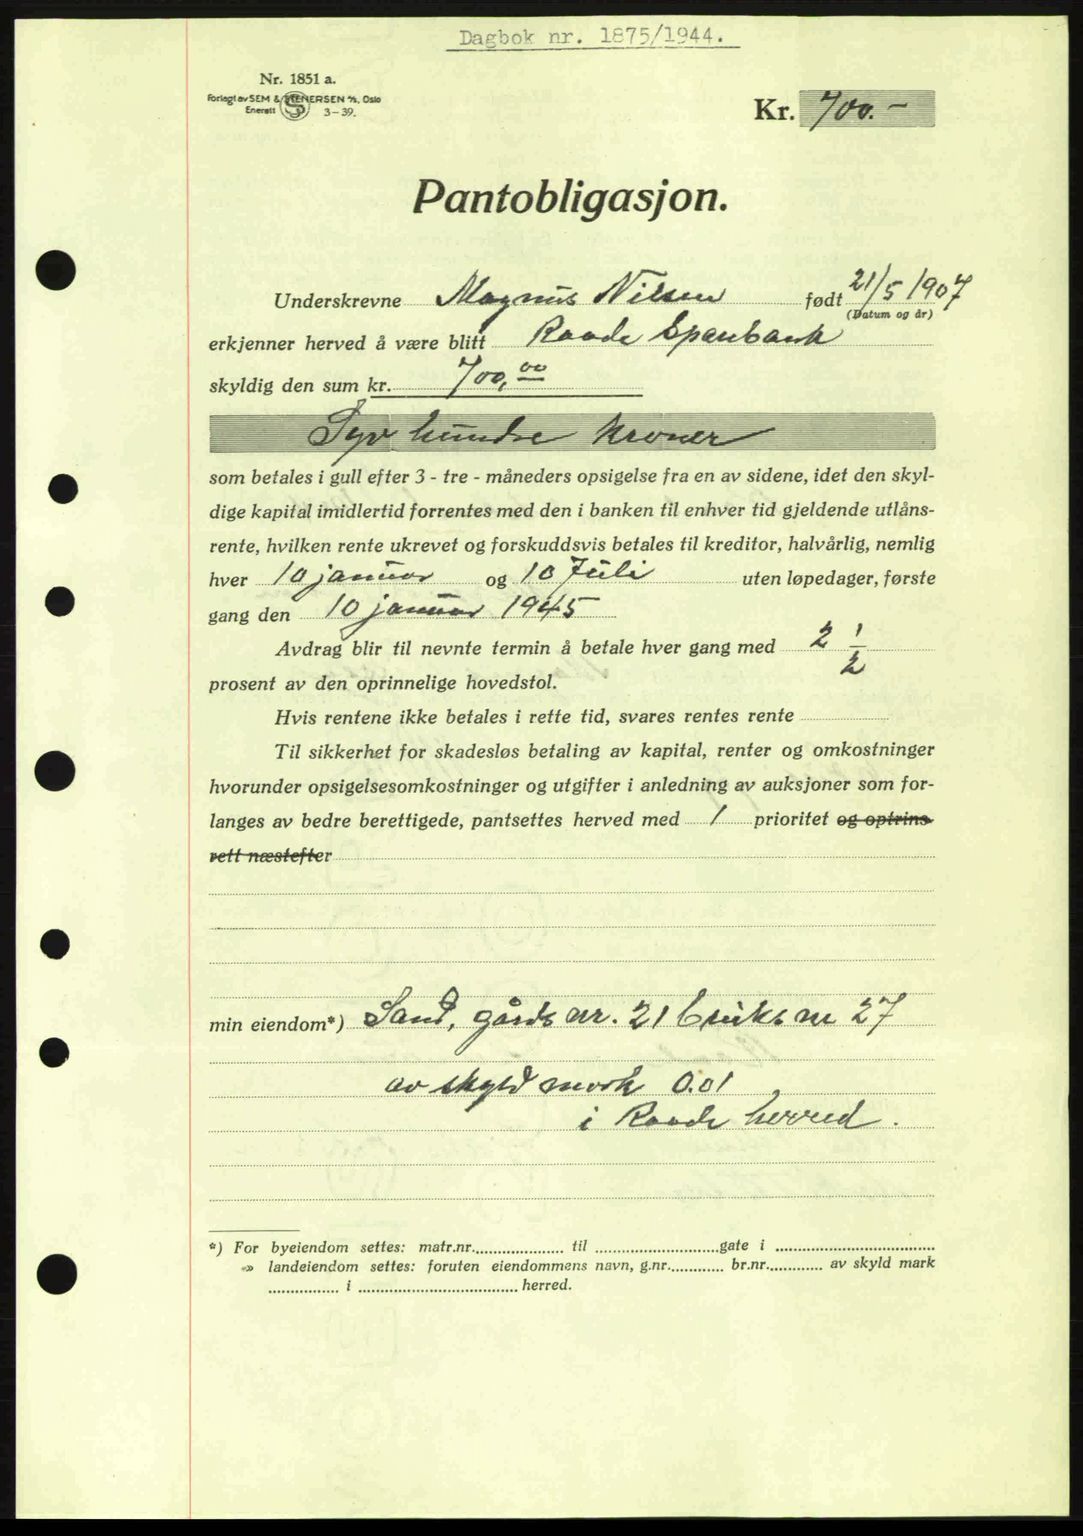 Dagbok nr. 1875/1944.
Nr. 1851 a.
Forlagt av SEM & STENERSEN A/S, Oslo
Enerett 3-39.
Kr. 700.-
Pantobligasjon.
Underskrevne Magnus Nilsen født 21/5 1907
(Datum og år)
erkjenner herved å være blitt Raade Sparebank
skyldig den sum kr. 700,00
Syv hundre kroner
som betales i gull efter 3 - tre - måneders opsigelse fra en av sidene, idet den skyl-
dige kapital imidlertid forrentes med den i banken til enhver tid gjeldende utlåns-
rente, hvilken rente ukrevet og forskuddsvis betales til kreditor, halvårlig, nemlig
hver 10 januar og 10 Juli uten løpedager, første
gang den 10 januar 1945
Avdrag blir til nevnte termin å betale hver gang med 2 1/2
prosent av den oprinnelige hovedstol.
Hvis rentene ikke betales i rette tid, svares rentes rente
Til sikkerhet for skadesløs betaling av kapital, renter og omkostninger
hvorunder opsigelsesomkostninger og utgifter i anledning av auksjoner som for-
langes av bedre berettigede, pantsettes herved med 1 prioritet og optrins-
rett næstefter
min eiendom*) Sand, gårds nr. 21 bruks nr 27
av skyld mark 0.01
i Raade herred.
*) For byeiendom settes: matr.nr. til gate i
«» landeiendom settes: foruten eiendommens navn, g.nr. br.nr. av skyld mark
i herred.